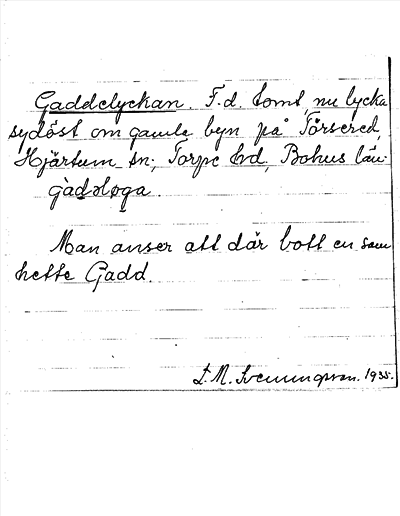 Gaddelyckan. F.d. tomt, nu lycka
sydöst om gamla byn på Törsered,
Hjärtum sn; Torpe hd, Bohus län.
gàdəløga.
Man anser att där bott en som
hette Gadd.
S. M. Svenungsson. 1935.